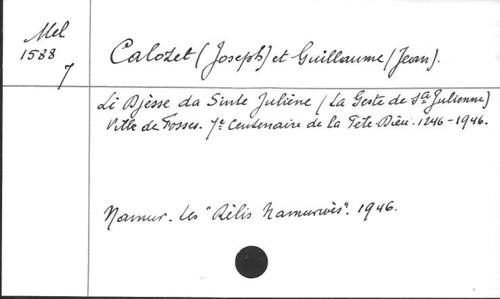 Mel
1588
7
Calozet (Joseph) et Guillaume (Jean).
Li Djèsse da Sinte Juliène (La Geste de Sta Julienne)
Ville de Fosses. 7e Centenaire de la Fête-Dieu. 1246-1946.
Namur. Les "Rèlîs Namurwès". 1946.